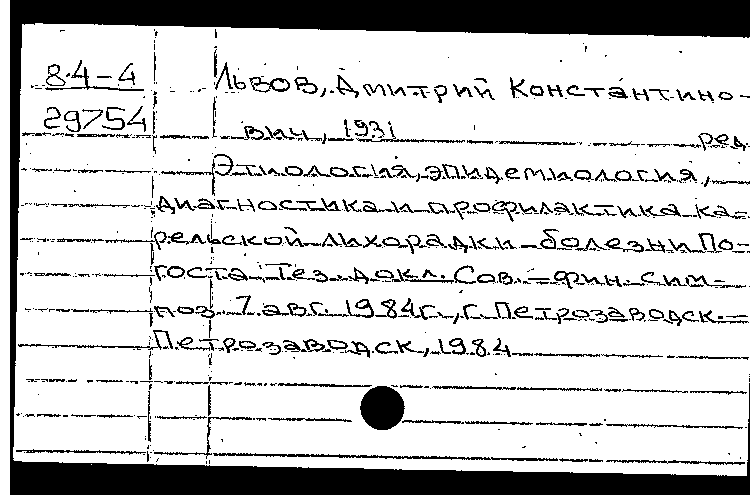 84-4
29754
Львов, Дмитрий Константино-
вич, 1931 ред.
Этиология, эпидемиология,
диагностика и профилактика ка-
рельской лихорадки - болезни По-
госта. Тез. докл. Сов.-фин. сим-
поз. 7 авг. 1984г., г. Петрозаводск. -
Петрозаводск, 1984